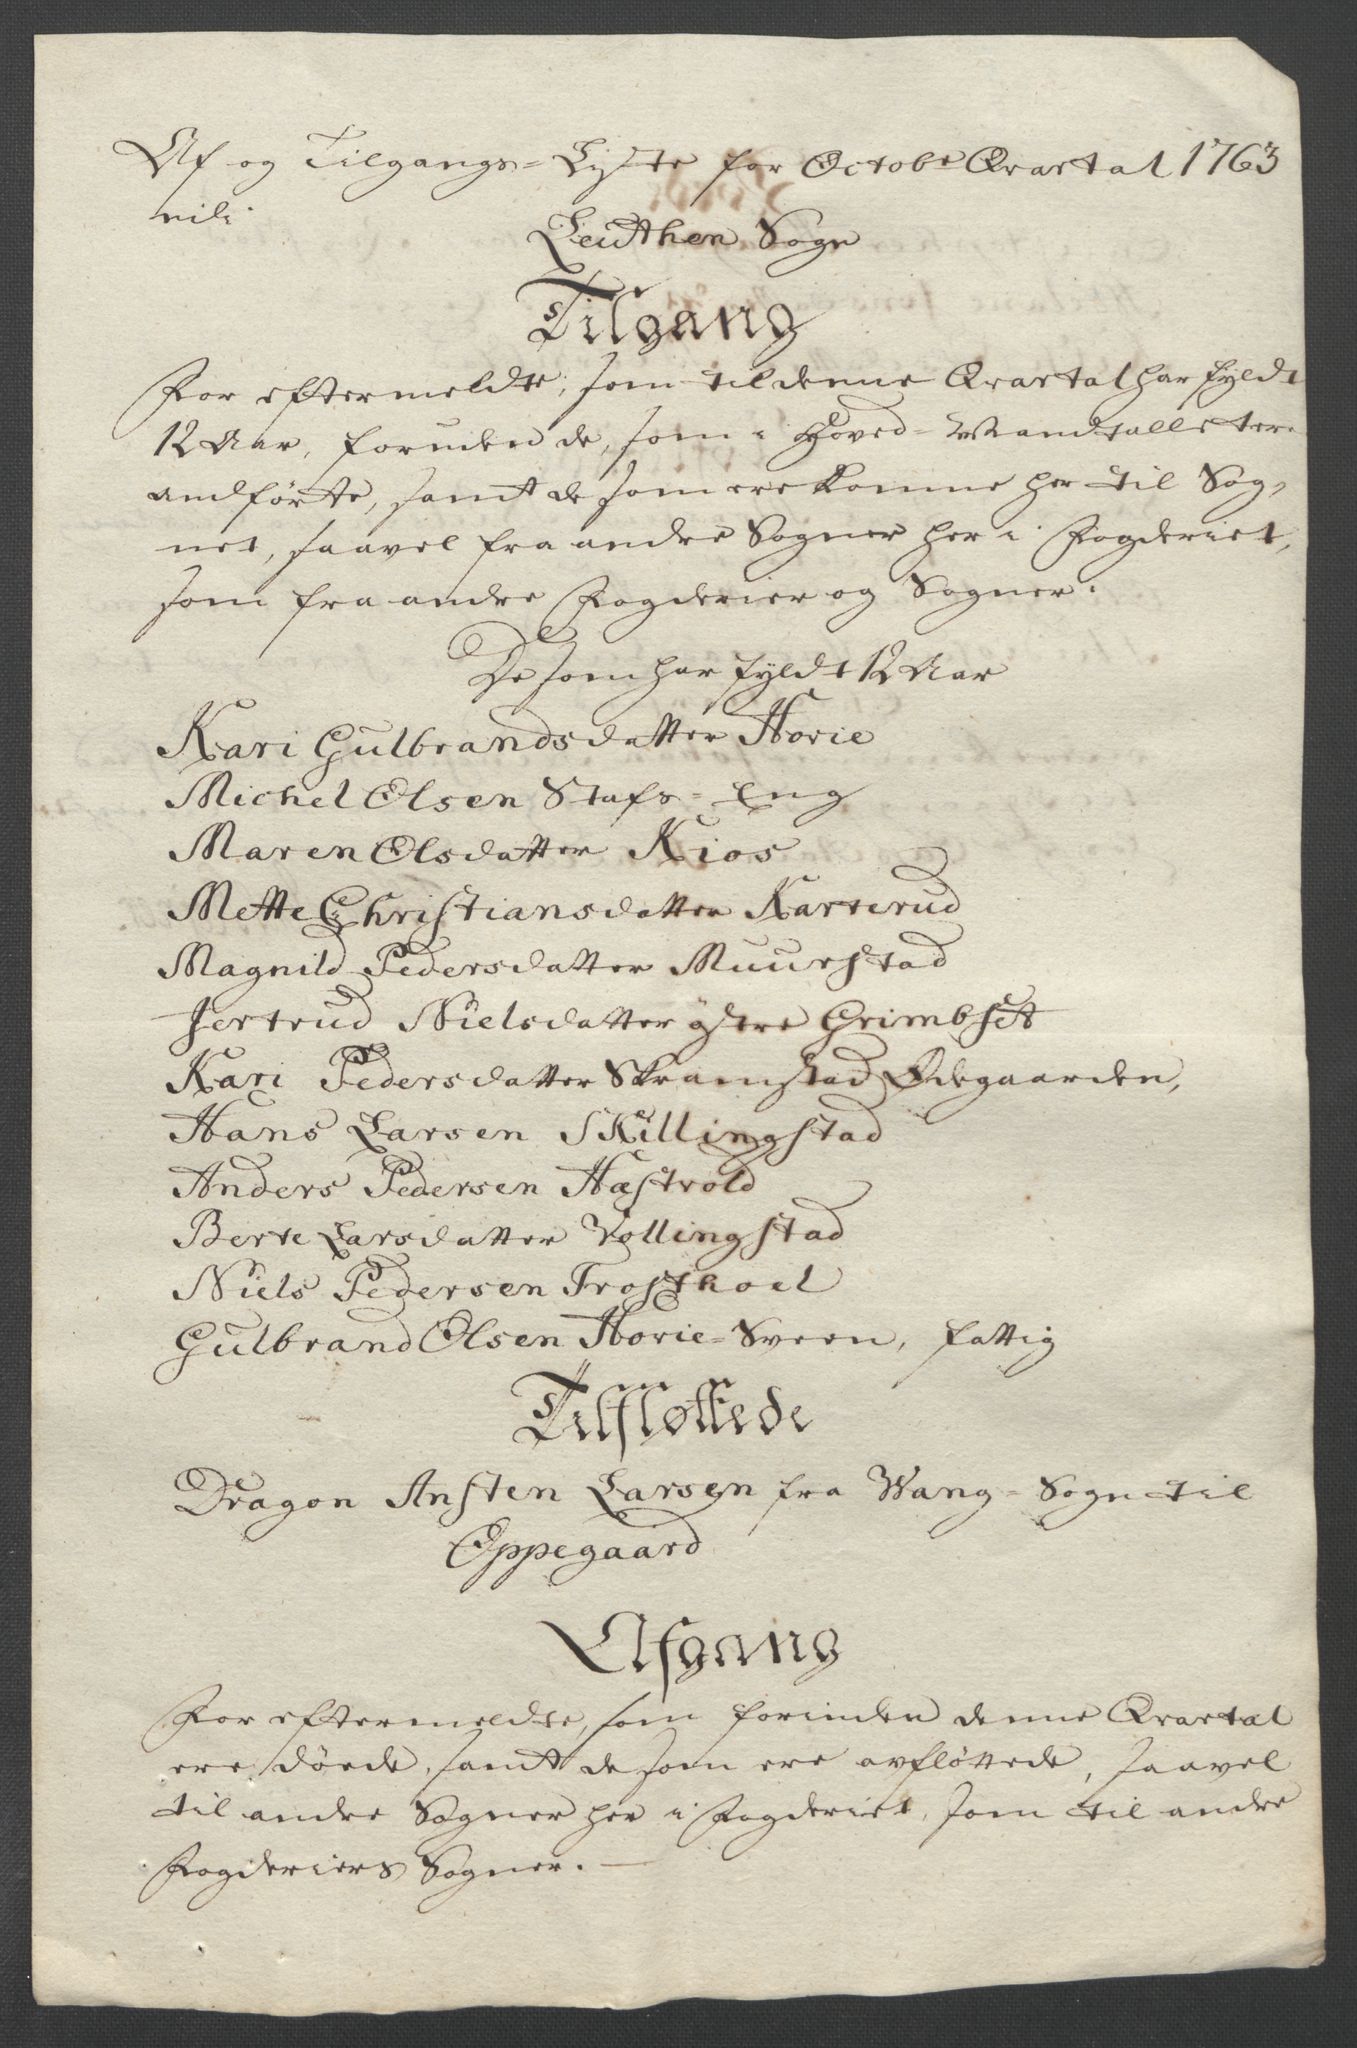 Af og Tilgangs-Lyste for Octobr Qvartal 1763
Leuthen Sogn
Tilgang
For eftermeldte, som til denne Qvartal har fyldt
12 Aar, foruden de, som i Hoved-Mandtallet ere
anførte, samt de som ere komne her til Sog-
net, saavel fra andre Sogner her i Fogderiet,
som fra andre Fogderier og Sogner.
De som har fyldt 12 Aar
Kari Gulbrandsdatter Horie
Michel Olsen Stafs-Eng
Maren Olsdatter Kios
Mette Christiansdatter Karterud
Magnild Pedersdatter Muurstad
Jertrud Nielsdatter østre Grimbset
Kari Pedersdatter Skramstad Ødegaarden,
Hans Larsen Skillingstad
Anders Pedersen Hæstvold
Berte Larsdatter Vollingstad
Niels Pedersen Frosthoel
Gulbrand Olsen Horie-Sveen, fattig
Tilfløttede
Dragon Ansten Larsen fra Wang-Sogn til
Oppegaard
Afgang
For eftermeldte, som forinden denne Qvartal
ere døede, samt de som ere avfløttede, saavel
til andre Sogner her i Fogderiet, som til andre
Fogderiers Sogner.